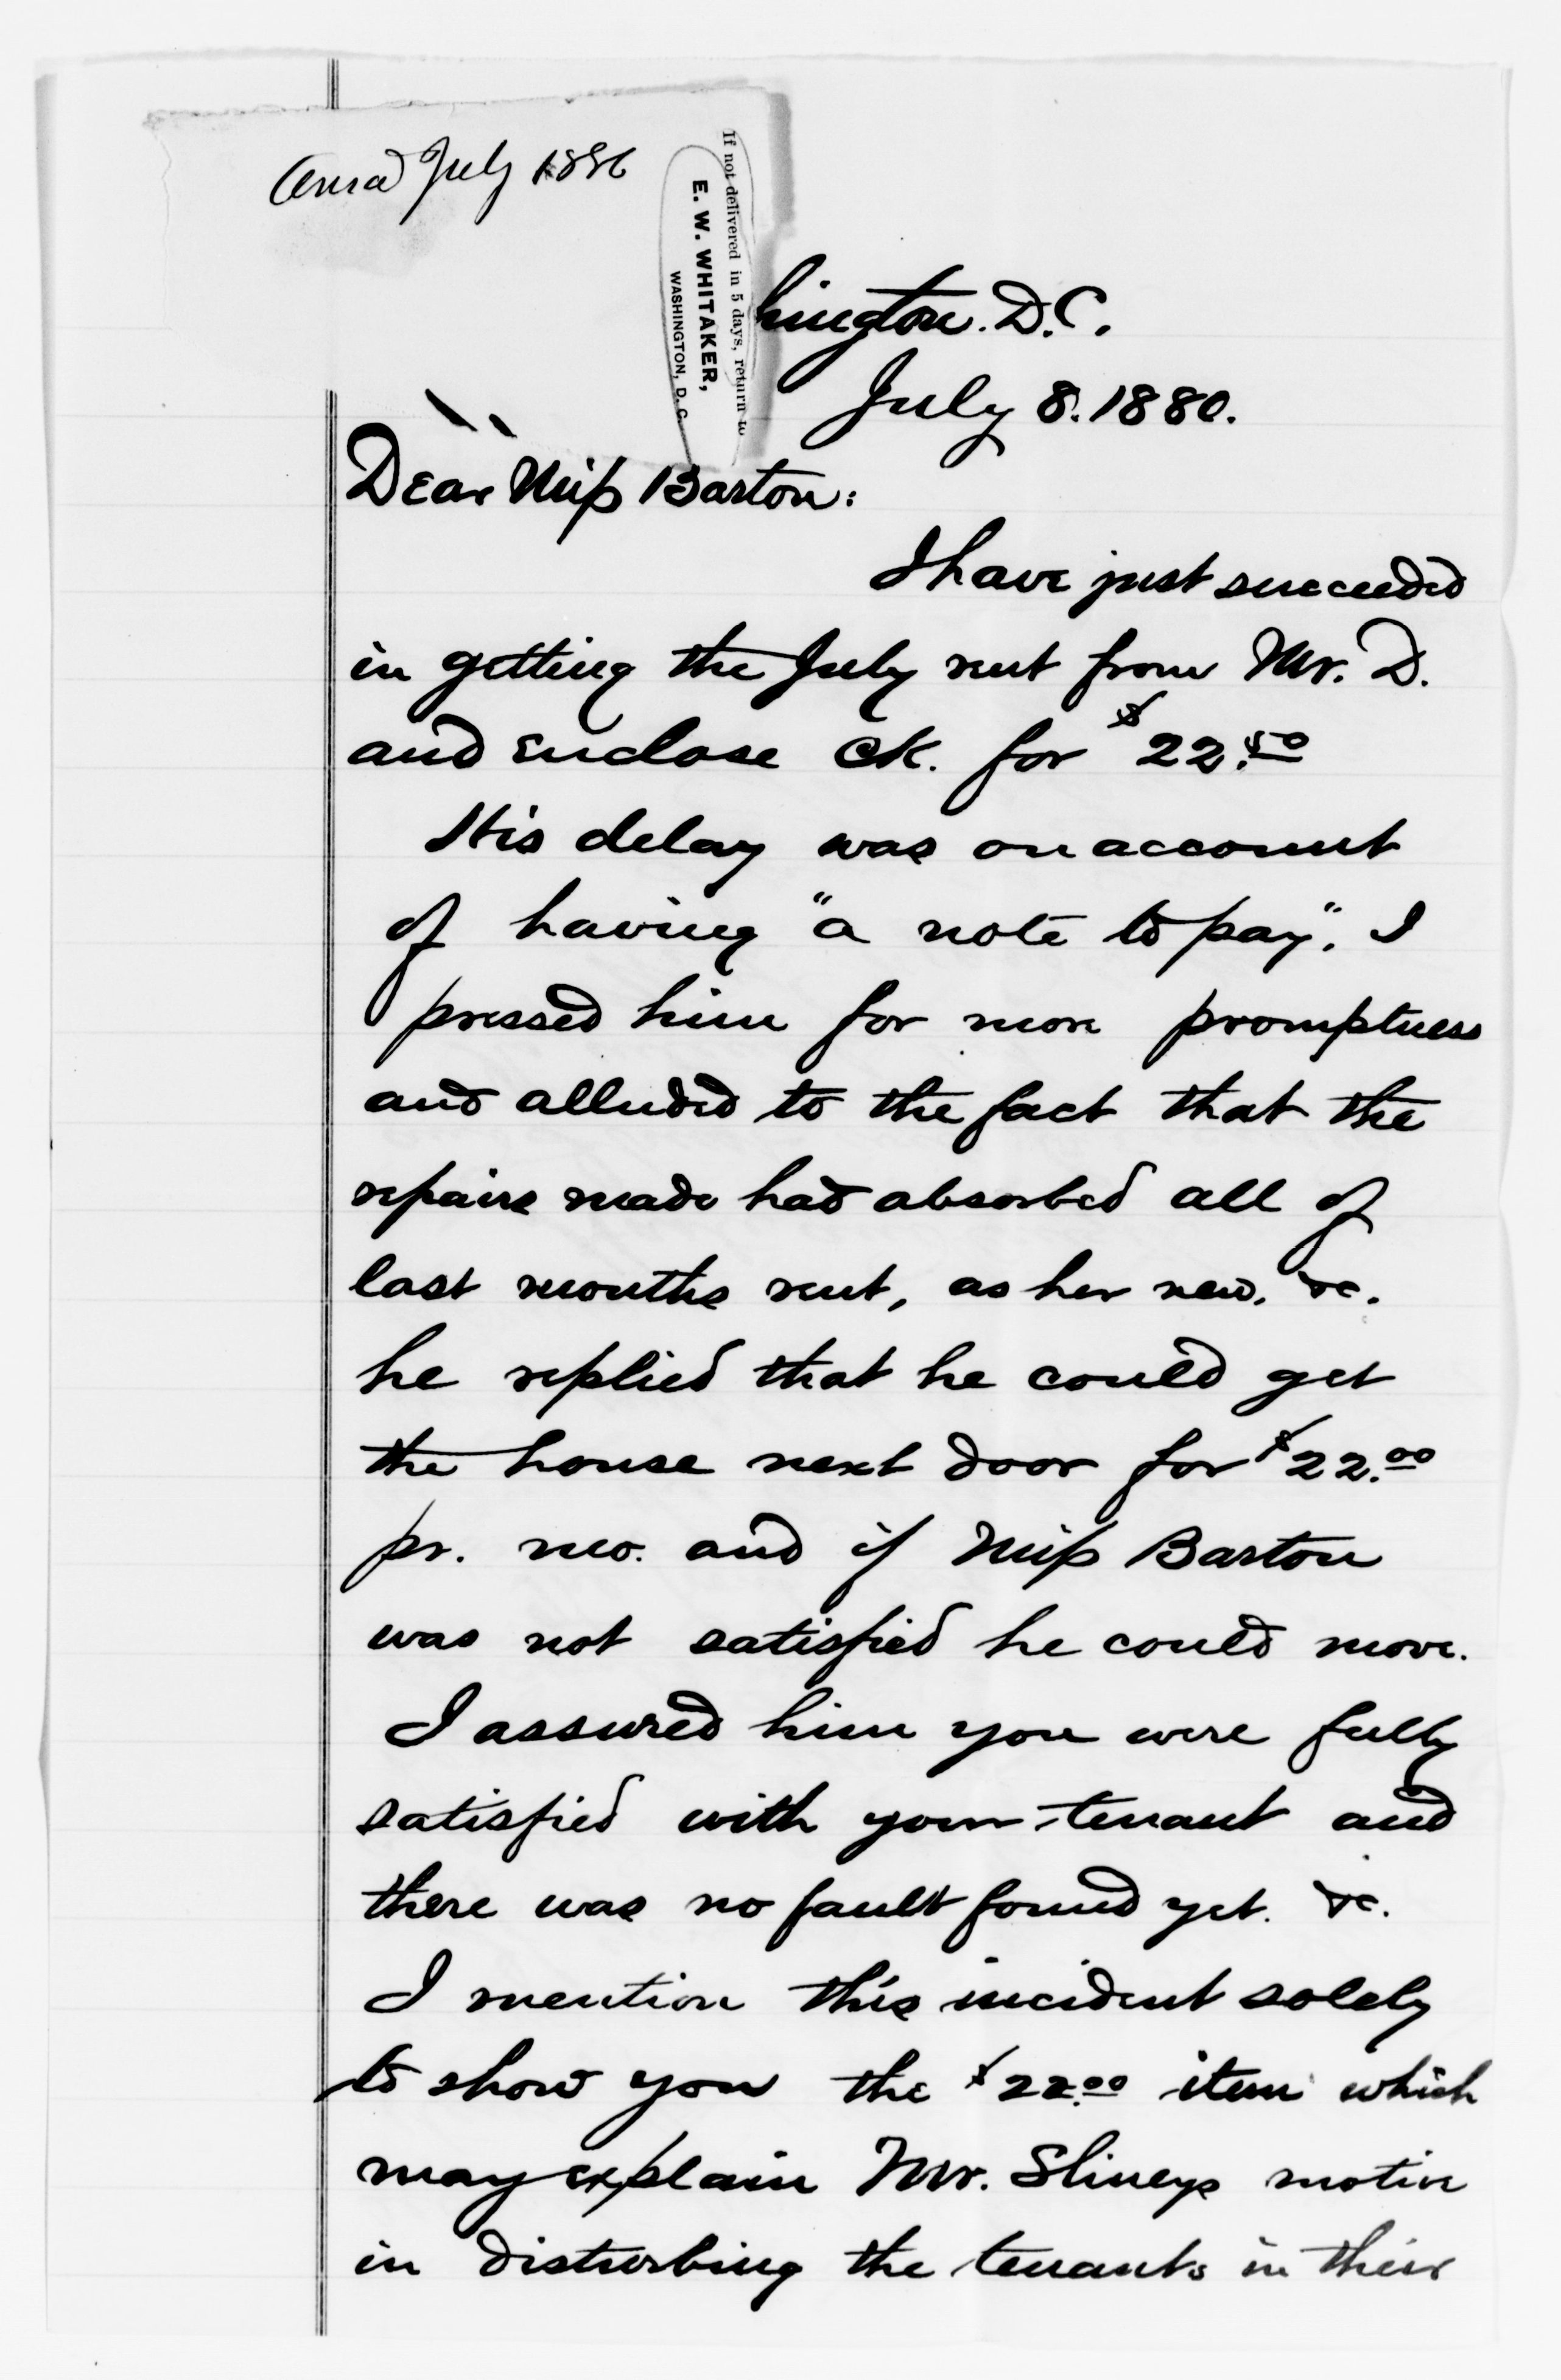 Ansd July 1886
If not delivered in 5 days, return to
E. W. WHITAKER,
WASHINGTON, D. C.
hington. D.C.
July 8. 1880.
Dear Miss Barton:
I have just succeeded
in getting the July rent from Mr. D.
and enclose ck. for $22.50
His delay was on account
of having "a note to pay". I
pressed him for more promptness
and alluded to the fact that the
repairs made had absorbed all of
last months rent, as her new. &c.
he replied that he could get
the house next door for $22.00
pr. mo. and if Miss Barton
was not satisfied he could move.
I assured him you were fully
satisfied with your tenant and
there was no fault found yet. &c.
I mention this incident solely
to show you the $22.00 item which
may explain Mr. Slineys motive
in disturbing the tenants in their